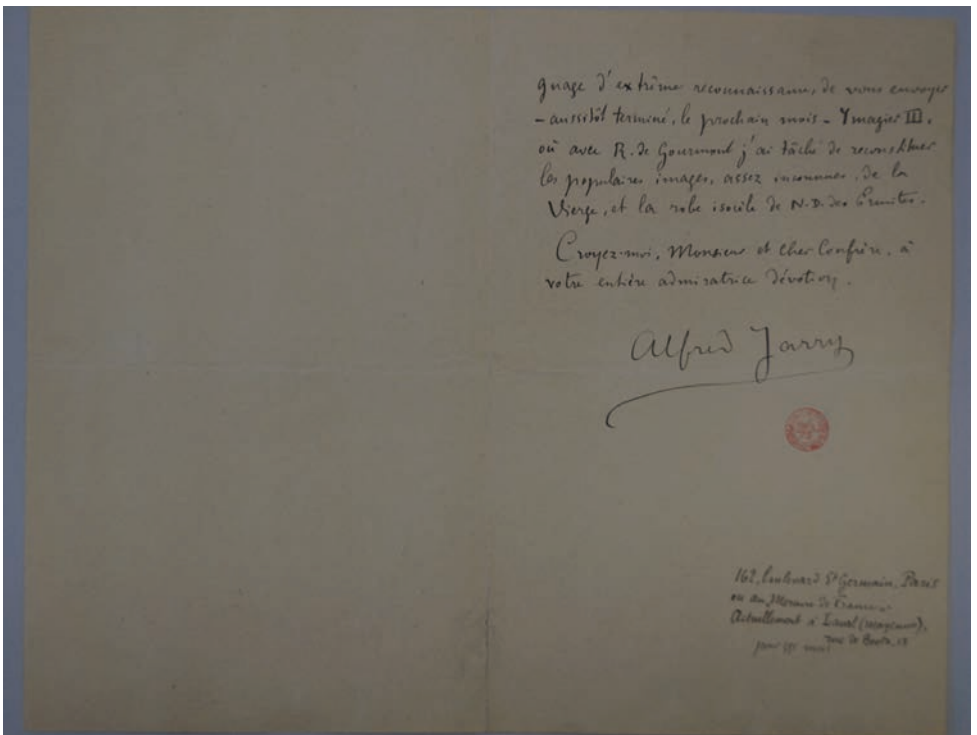 gnage d'extrême reconnaissance, de vous envoyer
– aussitôt terminé, le prochain mois – Ymagier III,
où avec R. de Gourmont j'ai tâché de reconstituer
les populaires images, assez inconnues, de la
Vierge, et la robe isocèle de N.D. des Ermites.
Croyez-moi, Monsieur et Cher Confrère, à
votre entière admiratrice dévotion.
Alfred Jarry
162, boulevard St Germain, Paris
ou au Mercure de France
Actuellement à Laval (Mayenne),
rue de
pour